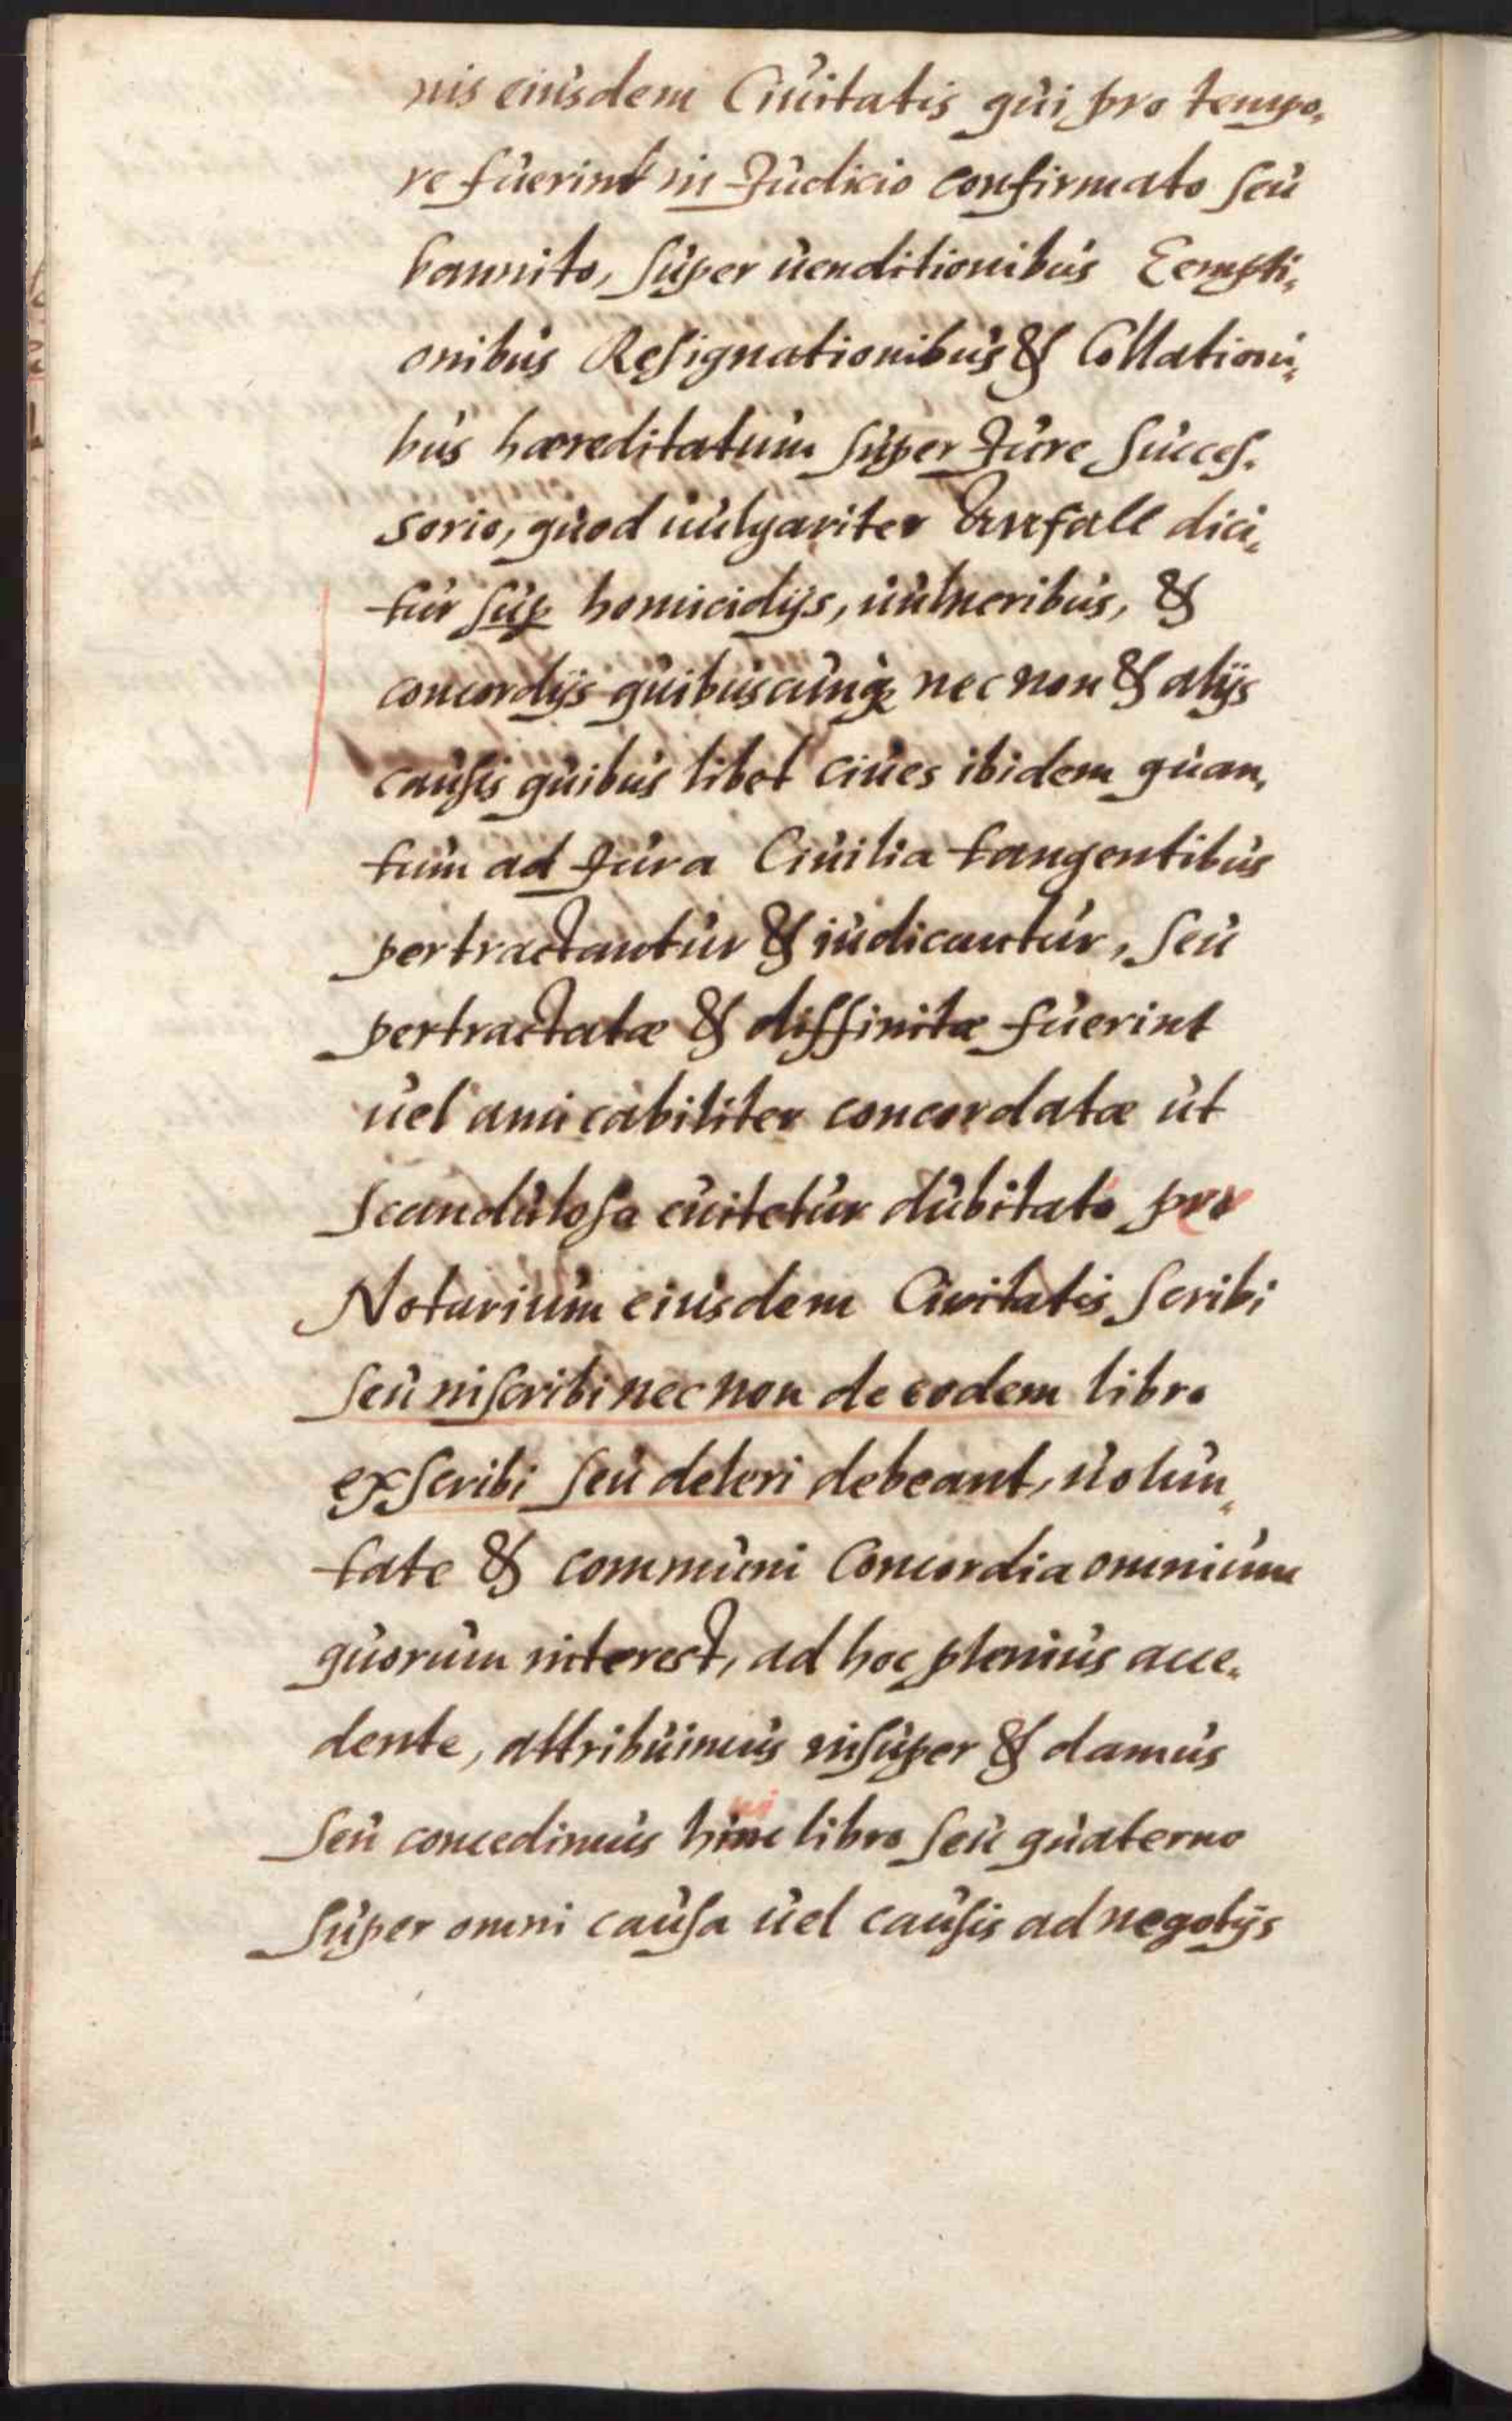 nis eiusdem Ciuitatis qui pro tempo„
re fuerint in Judicio confirmato seu
bannito, super uenditionibus Eempti„
onibus Resignationibus & Collationi„
bus hæreditatum super Jure Succes„
sorio, quod uulgariter Anfall dici„
tur sup homicidijs, uulneribus, &
concordijs quibuscunq nec non & alijs
causis quibus libet ciues ibidem quan„
tum ad Jura Ciuilia tangentibus
pertractantur & iudicantur, seu
pertractatæ & diffinitæ fuerint
uel amicabiliter concordatæ ut
scandulosa euitetur dubitato per
Notarium eiusdem Civitatis scribi
seu inscribi nec non de eodem libro
exscribi seu deleri debeant, uolun„
tate & communi Concordia omnium
quorum interest, ad hoc plenius acce„
dente, attribuimus insuper & damus
seu concedimus libro seu quaterno
super omni causa uel causis ad negotijs